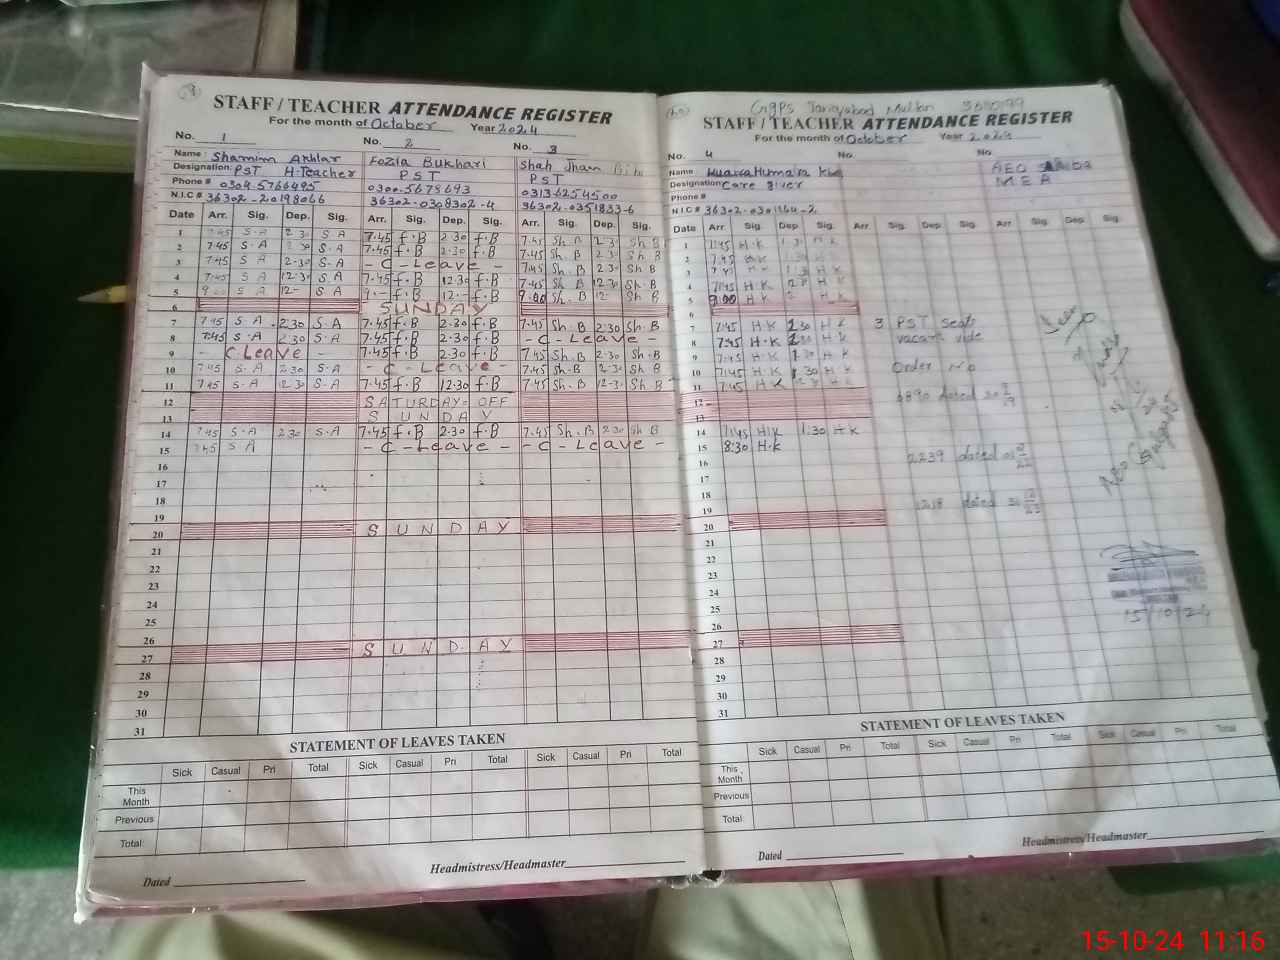 STAFF / TEACHER ATTENDANCE REGISTER
For the month of October Year 2024
No. 1 No. 2 No. 3
Name : Shamim Akhtar Fozia Bukhari Shah Jhan
Designation: PST H.Teacher PST PST
Phone # 0304-5766495 0300-5678693 03136254500
N.I.C # 36302-20198066 36302-0308302-4 36302-0351833-6
Date Arr. Sig. Dep. Sig. Arr. Sig. Dep. Sig. Arr. Sig. Dep. Sig.
1 7.45 S.A 2.30 S.A 7.45 f.B 2.30 f.B 7.45 Sh.B 2.30 Sh B
2 7.45 S.A 2.30 S.A 7.45 f.B 2.30 f.B 7.45 Sh.B 2.30 Sh.B
3 7.45 S.A 2.30 S.A - C-Leave - 7.45 Sh.B 2.30 Sh.B
4 7.45 S A 12.30 S.A 7.45 f.B 12.30 f.B 7.45 Sh.B 12.30 Sh.B
5 9.00 S A 12- S.A 9.- f.B 12.- f.B 9.00 Sh.B 12- Sh B
6 SUNDAY
7 7.45 S.A 2.30 S.A 7.45 f.B 2.30 f.B 7.45 Sh.B 2.30 Sh.B
8 7.45 S.A 2.30 S.A 7.45 f.B 2.30 f.B - C-Leave -
9 - C Leave - 7.45 f.B 2.30 f.B 7.45 Sh.B 2.30 Sh.B
10 7.45 S.A 2.30 S.A - C-Leave - 7.45 Sh.B 2.30 Sh B
11 7.45 S.A 12.30 S.A 7.45 f.B 12.30 f.B 7.45 Sh.B 12-30 Sh B
12 SATURDAY-OFF
13 SUNDAY
14 7.45 S.A 2.30 S.A 7.45 f.B 2.30 f.B 7.45 Sh.B 2.30 Sh B
15 7.45 S A - C-Leave - - C-Leave -
16
17
18
19
20 SUNDAY
21
22
23
24
25
26
27 SUNDAY
28
29
30
31
STATEMENT OF LEAVES TAKEN
Sick Casual Pri Total Sick Casual Pri Total Sick Casual Pri Total
This Month
Previous
Total:
Headmistress/Headmaster
Dated
GGPS Multan
STAFF / TEACHER ATTENDANCE REGISTER
For the month of October Year 2024
No. 4 No. No.
Name Humaira AEO
Designation Care giver M E A
Phone #
N.I.C # 36302-0301964-2
Date Arr. Sig. Dep Sig. Arr Sig. Dep Sig. Arr Sig. Dep Sig.
1 7:45 H-K 1.30 H K
2 7.45 H K 1.30 H K
3 7.45 H K 1.30 H K
4 7:45 H K H K
5 9:00 H K H K
6
7 7:45 H.K 1.30 H K 3 PST seats
8 7:45 H.K 1.30 H.K vacant vide
9 7:45 H.K 1.30 H.K
10 7:45 H.K 1.30 H.K Order No
11 7:45 H K H K
12 dated
13
14 7:45 H.K 1:30 H.K
15 8:30 H.K
16 2239 dated
17
18
19 dated
20
21
22
23
24
25
26
27
28
29
30
31
15/10/24
STATEMENT OF LEAVES TAKEN
Sick Casual Pri Total Sick Casual Pri Total Sick Casual Pri Total
This Month
Previous
Total:
Headmistress/Headmaster
Dated
15-10-24 11:16